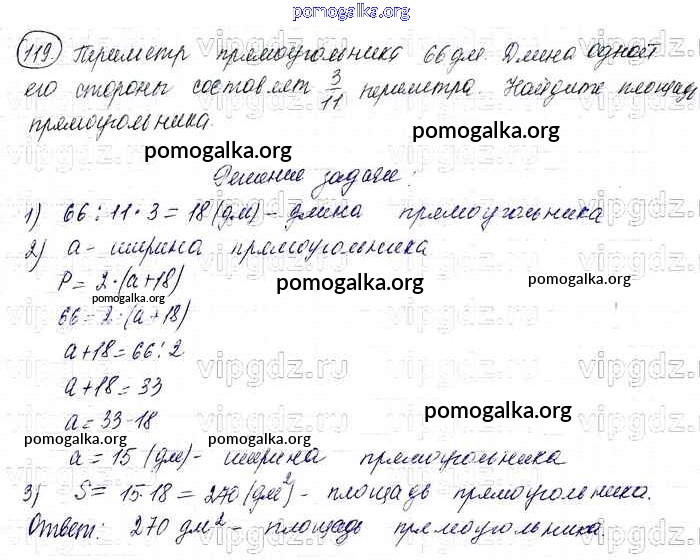 pomogalka.org
119. Периметр прямоугольника 66 дм. Длина одной
его стороны составляет 3/11 периметра. Найдите площадь
прямоугольника.
pomogalka.org
pomogalka.org
Решение задачи:
1) 66 : 11 · 3 = 18 (дм) - длина прямоугольника
2) a - ширина прямоугольника
P = 2 · (a + 18)
pomogalka.org
pomogalka.org
pomogalka.org
66 = 2 · (a + 18)
a + 18 = 66 : 2
vipgdz.ru
a + 18 = 33
a = 33 - 18
pomogalka.org
pomogalka.org
pomogalka.org
a = 15 (дм) - ширина прямоугольника
3) S = 15 · 18 = 270 (дм²) - площадь прямоугольника.
Ответ: 270 дм² - площадь прямоугольника.